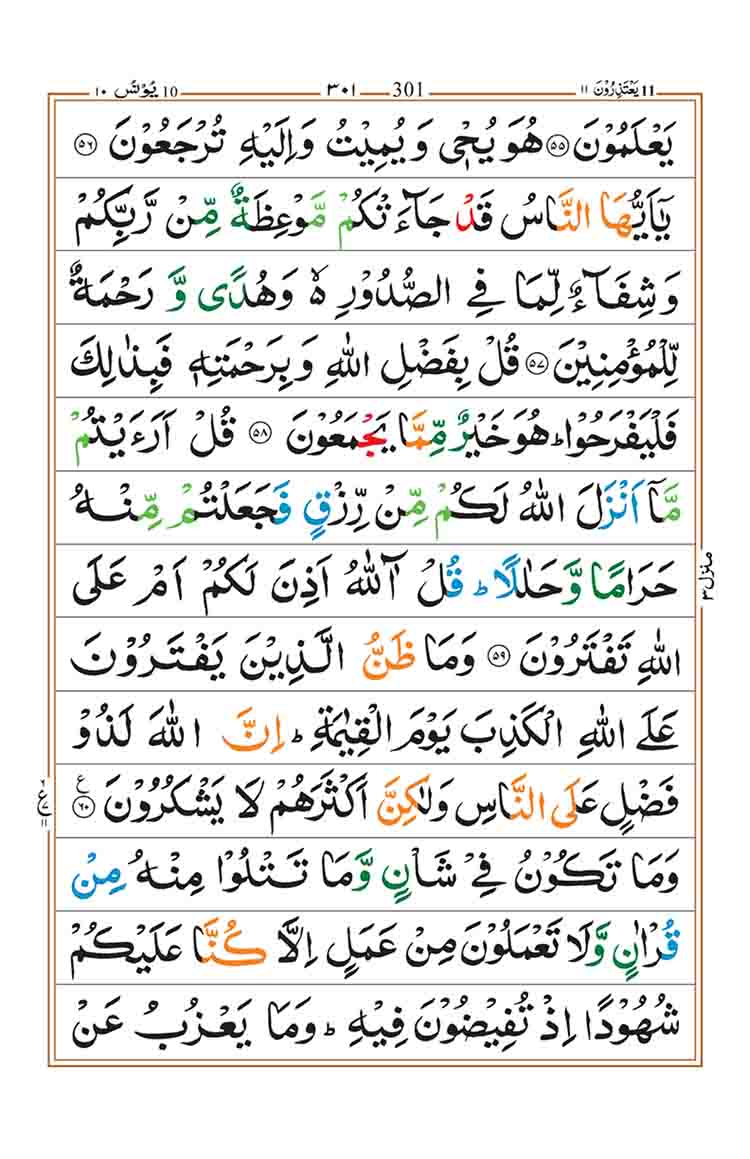 11 یَعْتَذِرُوْنَ ۱۱ 301 ۳۰۱ 10 یُوْنُس ۱۰
یَعْلَمُوْنَ ۝۵۵ هُوَ یُحْیٖ وَ یُمِیْتُ وَ اِلَیْهِ تُرْجَعُوْنَ ۝۵۶
یٰۤاَیُّهَا النَّاسُ قَدْ جَآءَتْكُمْ مَّوْعِظَةٌ مِّنْ رَّبِّكُمْ
وَ شِفَآءٌ لِّمَا فِی الصُّدُوْرِ ۙ۬ وَ هُدًی وَّ رَحْمَةٌ
لِّلْمُؤْمِنِیْنَ ۝۵۷ قُلْ بِفَضْلِ اللّٰهِ وَ بِرَحْمَتِهٖ فَبِذٰلِكَ
فَلْیَفْرَحُوْا ؕ هُوَ خَیْرٌ مِّمَّا یَجْمَعُوْنَ ۝۵۸ قُلْ اَرَءَیْتُمْ
مَّاۤ اَنْزَلَ اللّٰهُ لَكُمْ مِّنْ رِّزْقٍ فَجَعَلْتُمْ مِّنْهُ
حَرَامًا وَّ حَلٰلًا ؕ قُلْ آٰللّٰهُ اَذِنَ لَكُمْ اَمْ عَلَی
اللّٰهِ تَفْتَرُوْنَ ۝۵۹ وَ مَا ظَنُّ الَّذِیْنَ یَفْتَرُوْنَ
عَلَی اللّٰهِ الْكَذِبَ یَوْمَ الْقِیٰمَةِ ؕ اِنَّ اللّٰهَ لَذُوْ
فَضْلٍ عَلَی النَّاسِ وَ لٰكِنَّ اَكْثَرَهُمْ لَا یَشْكُرُوْنَ ۝۶۰ ع
وَ مَا تَكُوْنُ فِیْ شَاْنٍ وَّ مَا تَتْلُوْا مِنْهُ مِنْ
قُرْاٰنٍ وَّ لَا تَعْمَلُوْنَ مِنْ عَمَلٍ اِلَّا كُنَّا عَلَیْكُمْ
شُهُوْدًا اِذْ تُفِیْضُوْنَ فِیْهِ ؕ وَ مَا یَعْزُبُ عَنْ
منزل ۳